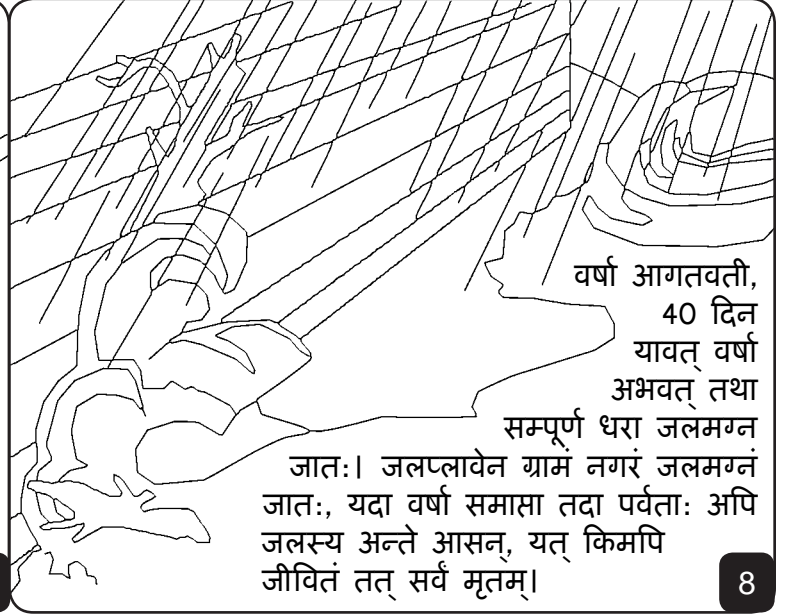 वर्षा आगतवती,
40 दिन
यावत् वर्षा
अभवत् तथा
सम्पूर्ण धरा जलमग्न
जात:। जलप्लावेन ग्रामं नगरं जलमग्नं
जात:, यदा वर्षा समाप्ता तदा पर्वता: अपि
जलस्य अन्ते आसन्, यत् किमपि
जीवितं तत् सर्वं मृतम्।
8